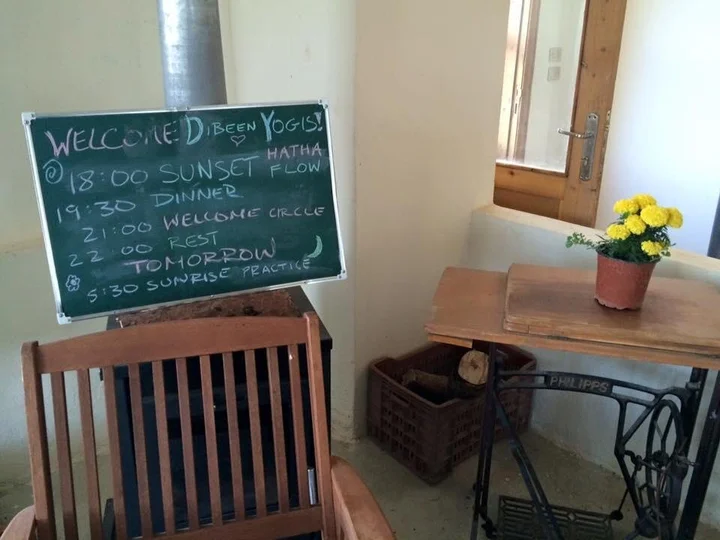 WELCOME DIBEEN YOGIS!
18:00 SUNSET HATHA FLOW
19:30 DINNER
21:00 WELCOME CIRCLE
22:00 REST
TOMORROW
5:30 SUNRISE PRACTICE
PHILIPPS